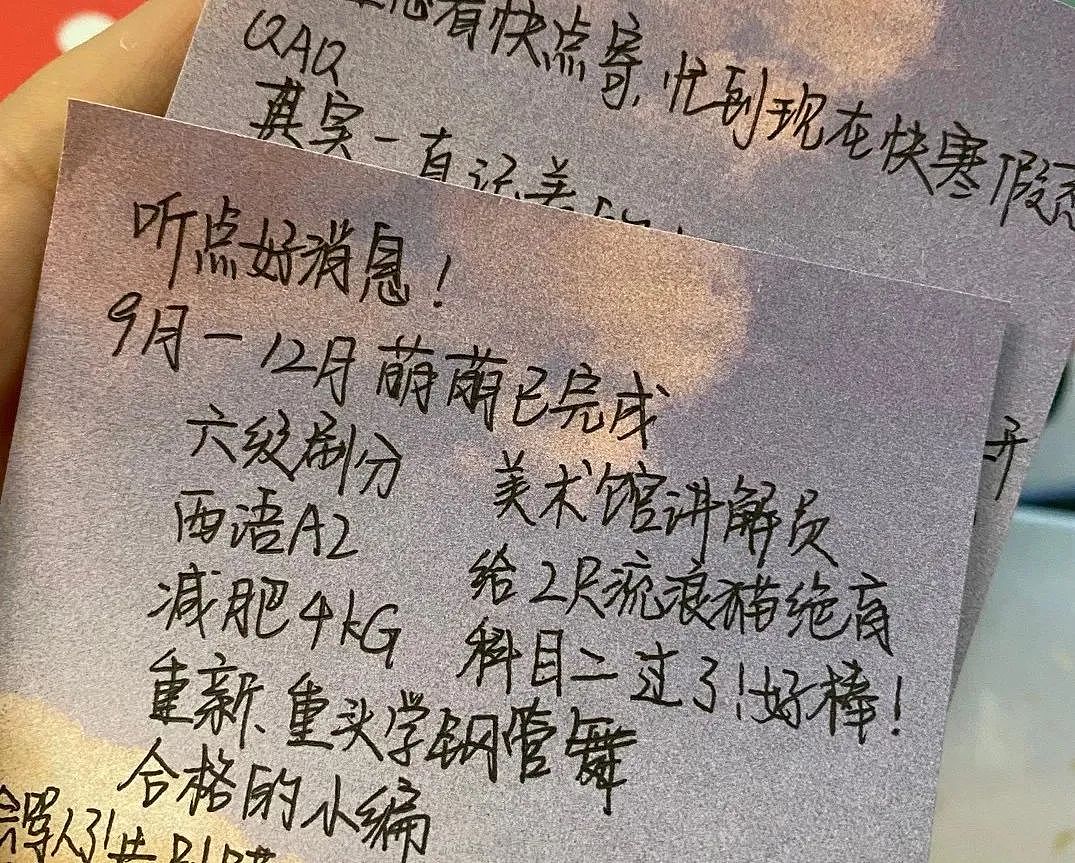 有快点寄,忙到现在快寒假
QAQ
其实一直记着的!
开
听点好消息!
9月-12月萌萌已完成
六级刷分
美术馆讲解员
西语A2
给2只流浪猫绝育
减肥4kG
科目二过了!好棒!
重新、重头学钢管舞
合格的小编